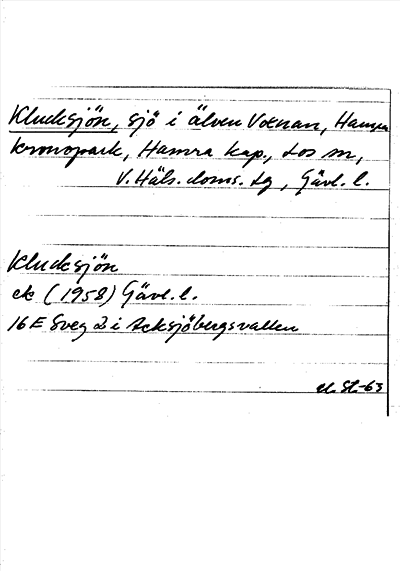 Klucksjön, sjö i älven Voxnan, Hamra
kronopark, Hamra kap., Los sn,
V. Häls. doms. tg, Gävl. l.
Klucksjön
ek (1958) Gävl. l.
16 E Sveg 2 i Acksjöbergsvallen
St-63